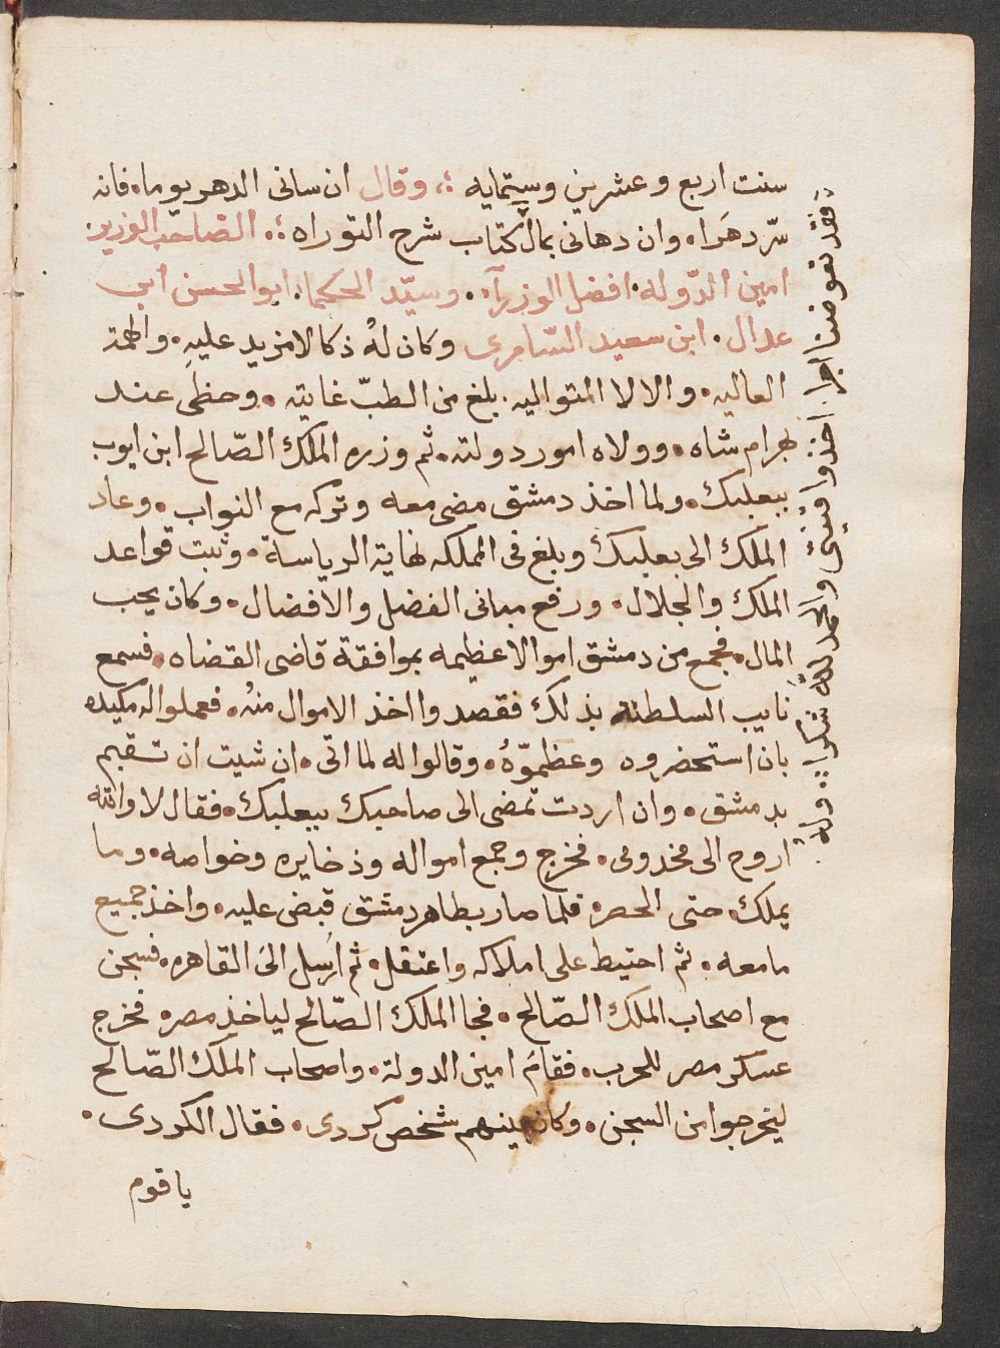 سنت اربع وعشرين وستمايه ؛، وقال ان سانى الدهر يوما، فانه
سّر دهَرا، وان دهانى بمال كتاب شرح التوراه ؛. الصّاحب الوزير
امين الدّوله. افضل الوزرآء. وسيّد الحكما. ابو الحسن ابى
عدال. ابن سعيد السّامرى وكان لهُ ذكا لا مزيد عليهِ. والهمة
العاليه. والالا المتواليه. بلغ من الطبّ غايته. وحظى عند
بهرام شاه. وولاه امور دولته. ثم وزره الملك الصّالح ابن ايوب
ببعلبك. ولما اخذ دمشق مضى معه وتركه مع النواب. وعاد
الملك الى بعلبك وبلغ فى المملكه نهاية الرياسة. وثبت قواعد
الملك والجلال. ورفع مبانى الفضل والافضال. وكان يحب
المال. فجمع من دمشق اموالا عظيمه بموافقة قاضى القضاه. فسمع
نايب السلطنة بذلك فقصدوا اخذ الاموال منهُ. فعملوا له مكيده
بان استحضروه وعظمّوهُ. وقالوا له لما اتى. ان شيت ان تقيم
بدمشق. وان اردت تمضى الى صاحبك ببعلبك. فقال لا والله
اروح الى مخدومى. فخرج وجمع امواله وذخايره وخواصه. وما
يملك. حتى الحصر. فلما صار بظاهر دمشق قبض عليه. واخذ جميع
ما معه. ثم احتيط على املاكه واعتقل. ثم ارسل الى القاهره. فسجن
مع اصحاب الملك الصّالح. فجا الملك الصّالح لياخذ مصر. فخرج
عسكر مصر للحرب. فقامَ امين الدولة. واصحاب الملك الصّالح
ليخرجوا من السجن. وكان بينهم شخص كردى. فقال الكردى.
يا قوم
فقد تعوضنا اجرا. اخذوا شيئى والحمد للّه شكرا. وله